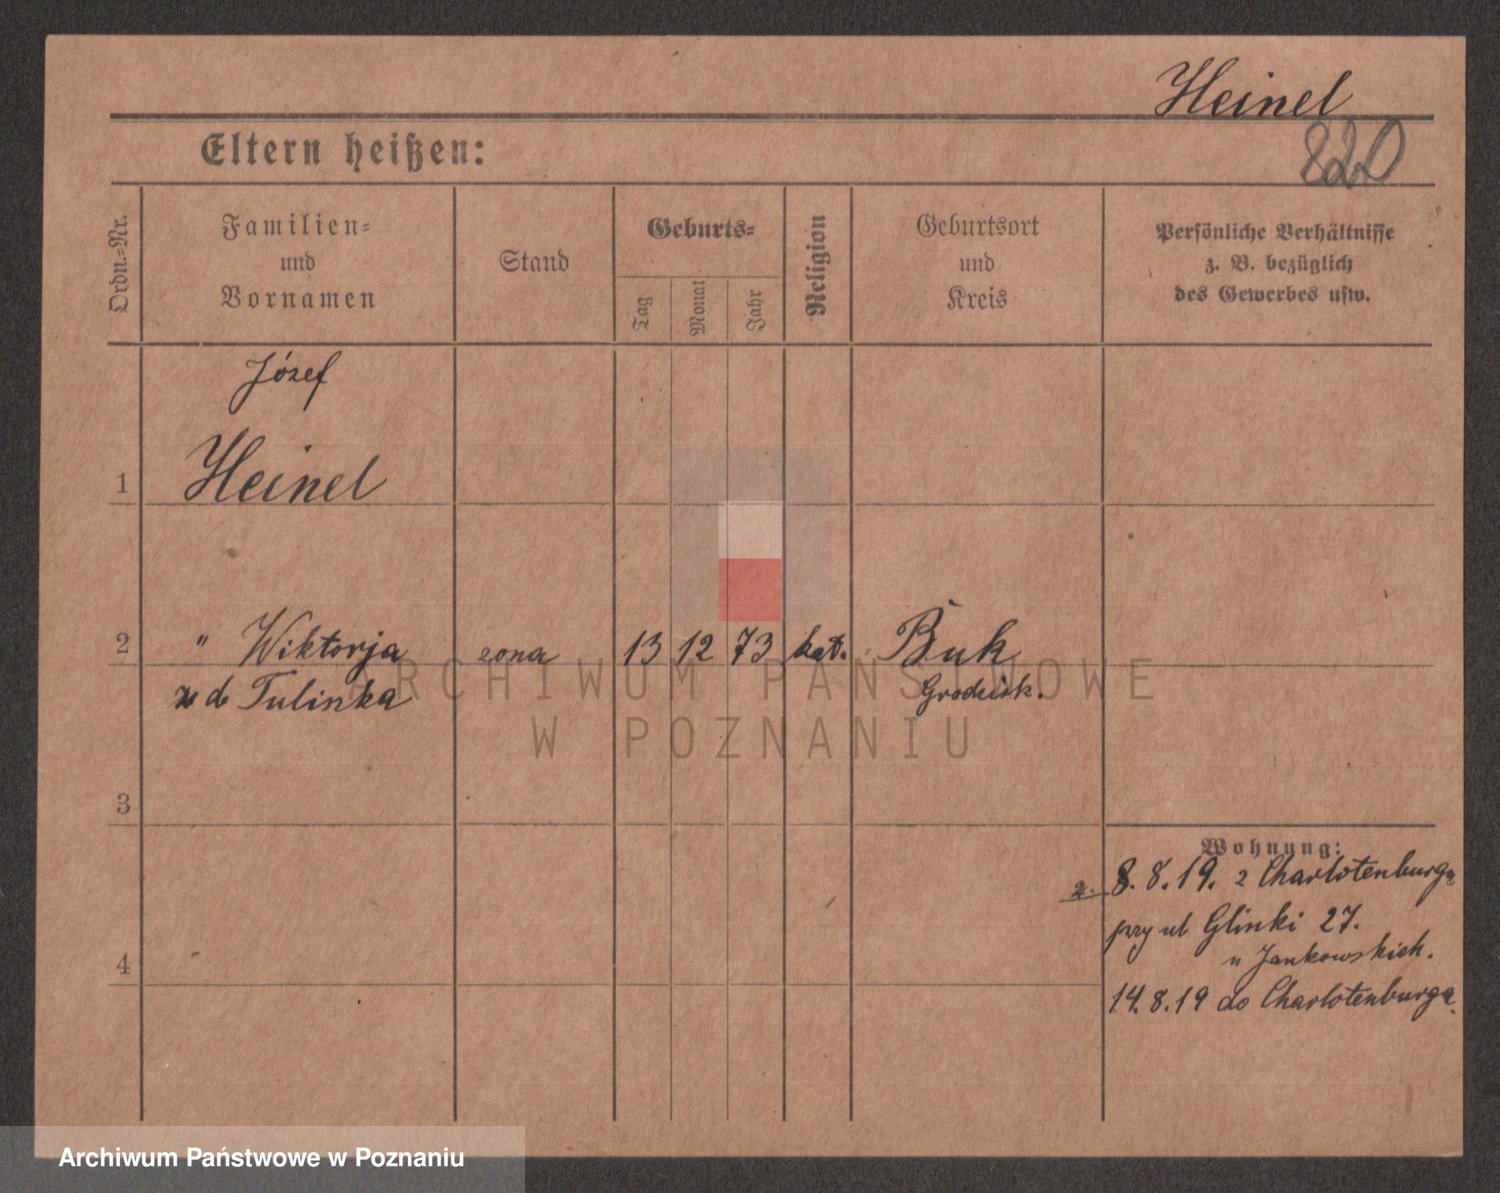 Heinel
820
Eltern heißen:
Ordn.-Nr.
Familien-
und
Vornamen
Stand
Geburts-
Tag
Monat
Jahr
Religion
Geburtsort
und
Kreis
Persönliche Verhältnisse
z. B. bezüglich
des Gewerbes usw.
Józef
1 Heinel
2 " Wiktorja zona 13 12 73 kat. Buk
z d Tulinka Grodzisk.
ARCHIWUM PAŃSTWOWE
W POZNANIU
3
Wohnung:
z. 8.8.19. z Charlotenburga
przy ul Glinki 27.
u Jankowskich.
4
14.8.19 do Charlotenburga.
Archiwum Państwowe w Poznaniu